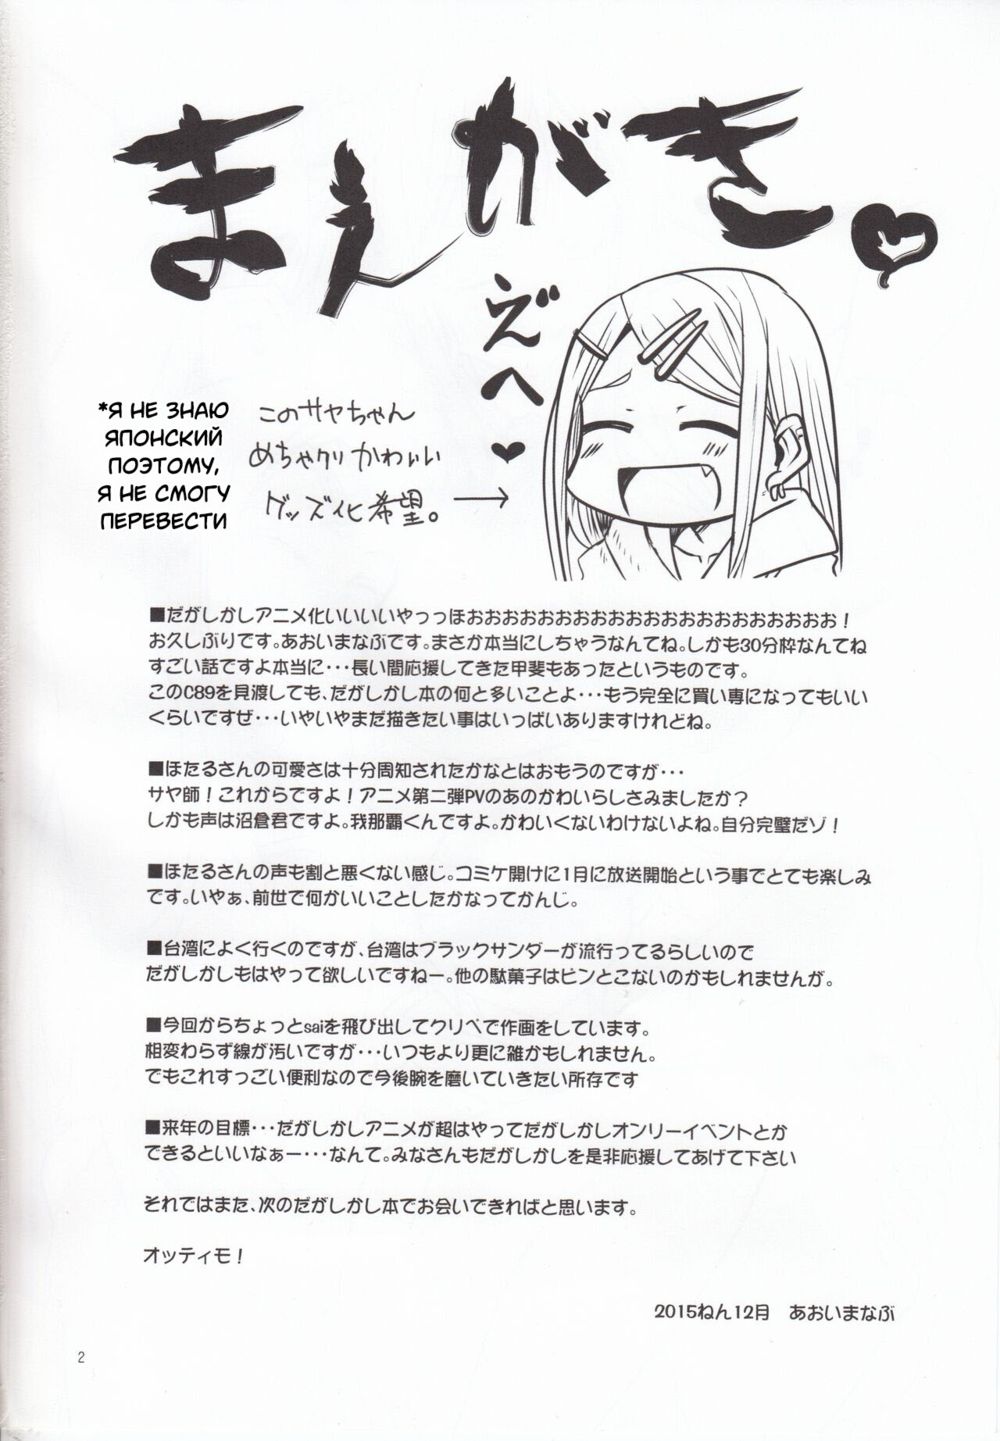 まえがき♥
えへ゛♥
*Я НЕ ЗНАЮ
ЯПОНСКИЙ
ПОЭТОМУ,
Я НЕ СМОГУ
ПЕРЕВЕСТИ
このサヤちゃん
めちゃクリかわいい
グッズ化希望。→
■だがしかしアニメ化いいいいやっっほおおおおおおおおおおおおおおおおおおおおお！
お久しぶりです。あおいまなぶです。まさか本当にしちゃうなんてね。しかも30分枠なんてね
すごい話ですよ本当に・・・長い間応援してきた甲斐もあったというものです。
このC89を見渡しても、だがしかし本の何と多いことよ・・・もう完全に買い専になってもいい
くらいですぜ・・・いやいやまだ描きたい事はいっぱいありますけれどね。
■ほたるさんの可愛さは十分周知されたかなとはおもうのですが・・・
サヤ師！これからですよ！アニメ第二弾PVのあのかわいらしさみましたか？
しかも声は沼倉君ですよ。我那覇くんですよ。かわいくないわけないよね。自分完璧だゾ！
■ほたるさんの声も割と悪くない感じ。コミケ開けに1月に放送開始という事でとても楽しみ
です。いやぁ、前世で何かいいことしたかなってかんじ。
■台湾によく行くのですが、台湾はブラックサンダーが流行ってるらしいので
だがしかしもはやって欲しいですねー。他の駄菓子はピンとこないのかもしれませんが。
■今回からちょっとsaiを飛び出してクリペで作画をしています。
相変わらず線が汚いですが・・・いつもより更に雑かもしれません。
でもこれすっごい便利なので今後腕を磨いていきたい所存です
■来年の目標・・・だがしかしアニメが超はやってだがしかしオンリーイベントとか
できるといいなぁー・・・なんて。みなさんもだがしかしを是非応援してあげて下さい
それではまた、次のだがしかし本でお会いできればと思います。
オッティモ！
2015ねん12月　あおいまなぶ
2